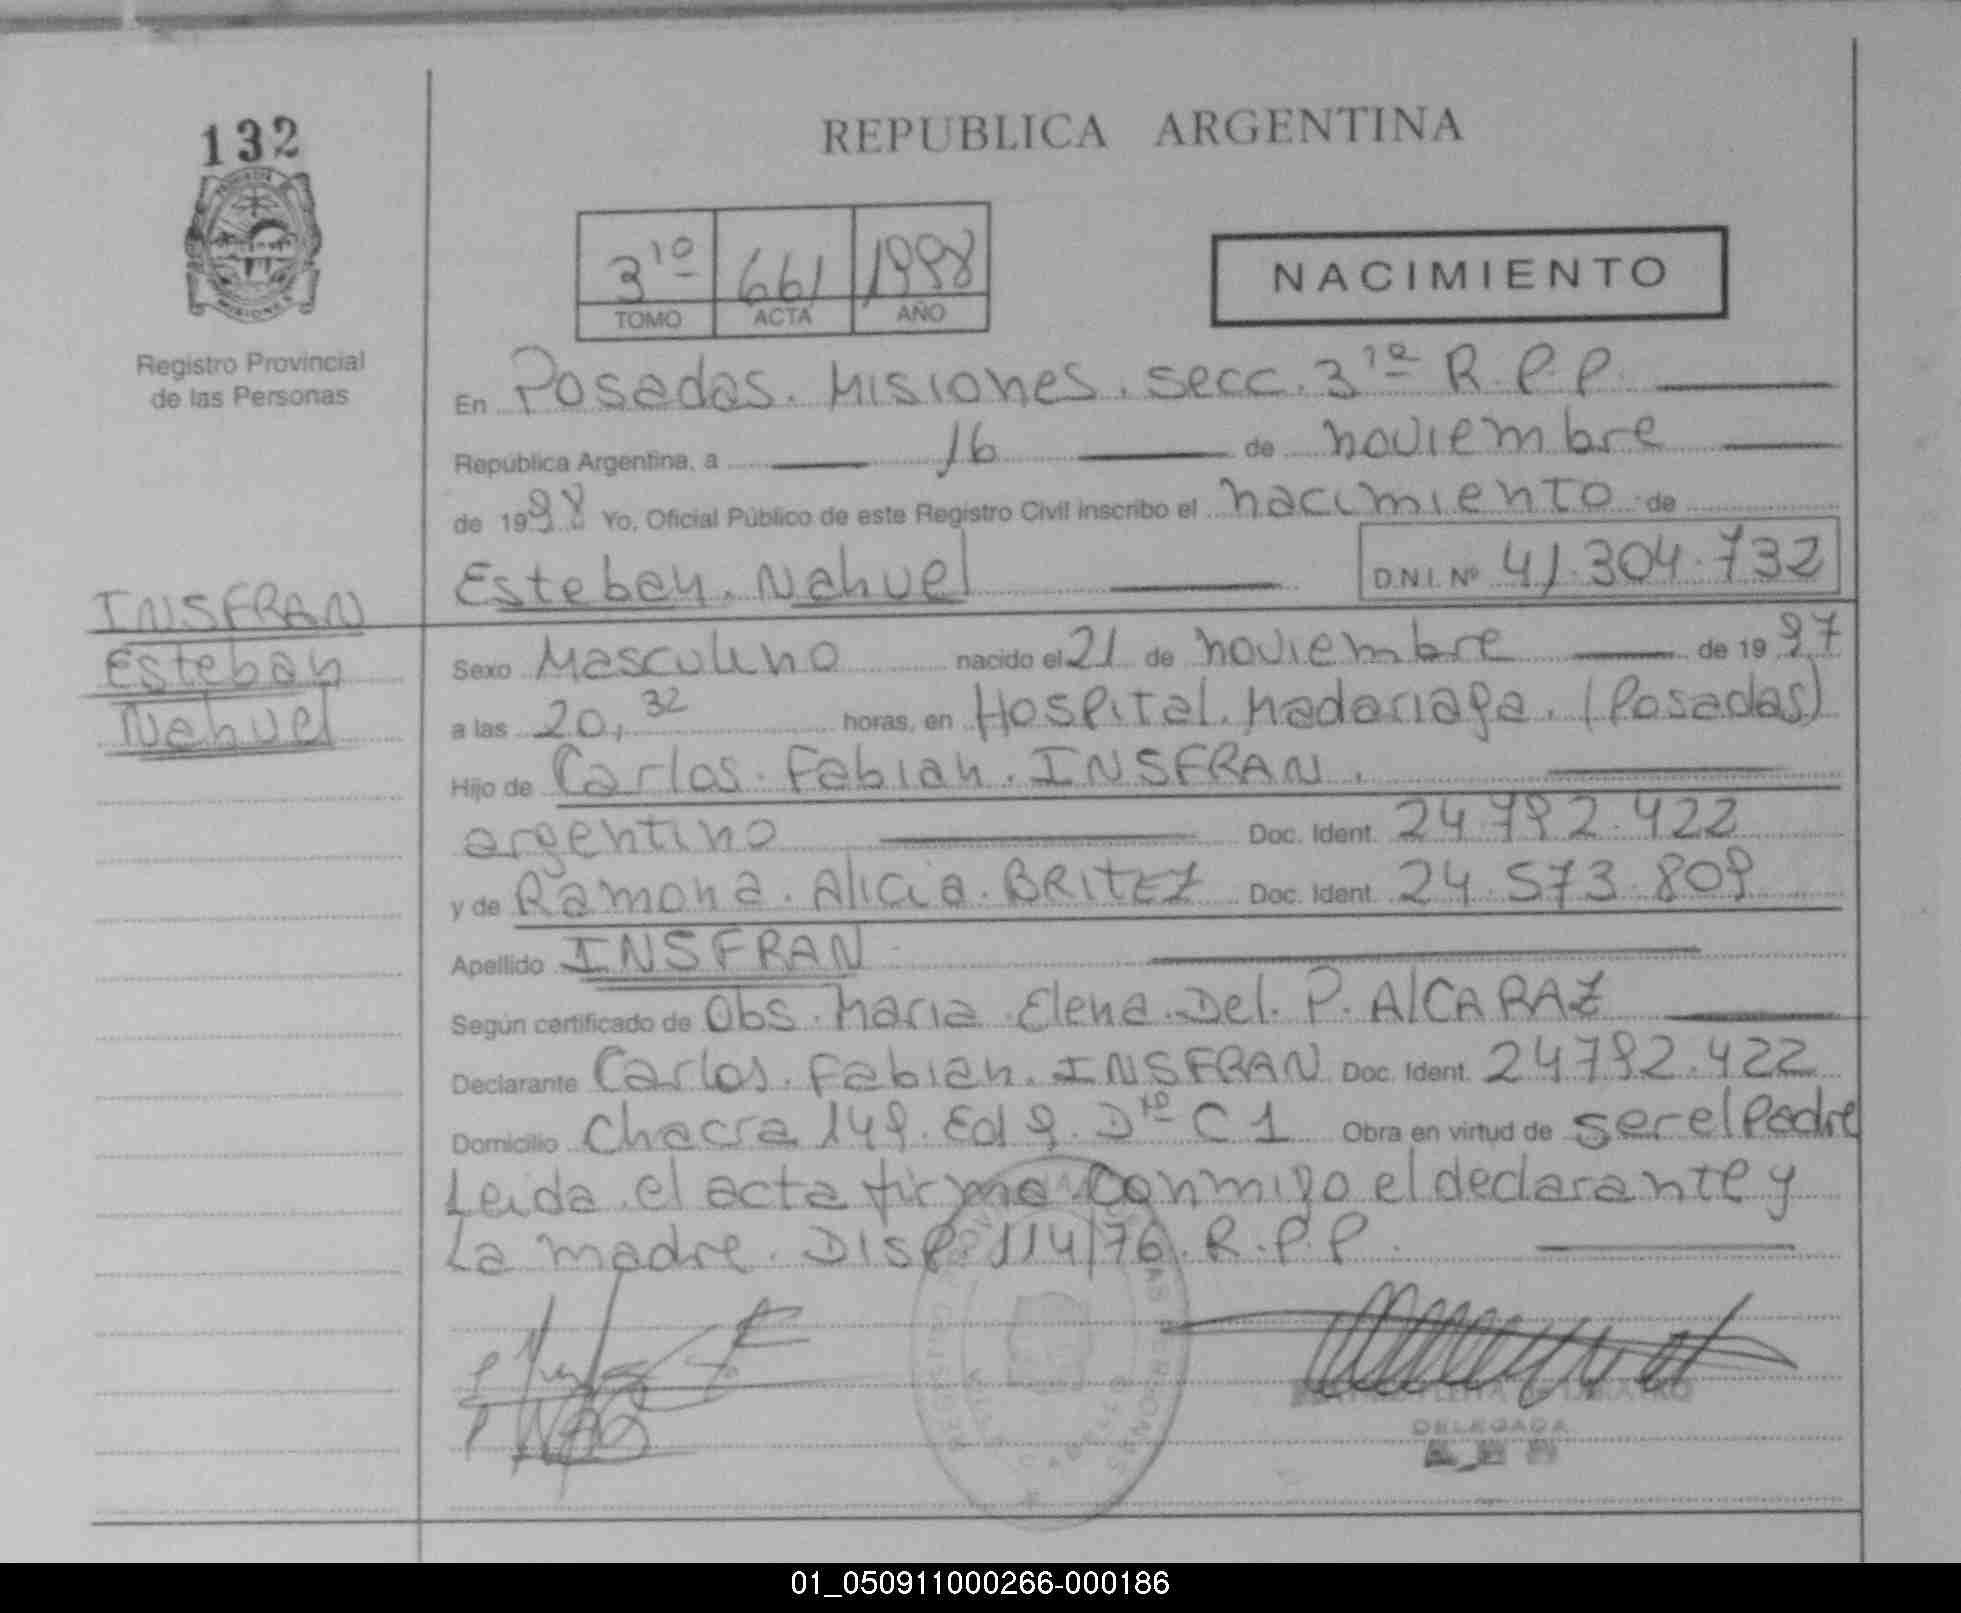 132
REPUBLICA ARGENTINA
3ro 661 1998
TOMO ACTA AÑO
NACIMIENTO
Registro Provincial
de las Personas
En Posadas. Misiones. secc. 3ra R.P.P.
República Argentina, a 16 de noviembre
de 1998 Yo, Oficial Público de este Registro Civil inscribo el nacimiento de
Esteban. Nahuel D.N.I. Nº 41.304.732
INSFRAN
Esteban
Nahuel
Sexo Masculino nacido el 21 de noviembre de 1997
a las 20,32 horas, en Hospital. Madariaga. (Posadas)
Hijo de Carlos. Fabian. INSFRAN.
argentino Doc. Ident. 24.792.422
y de Ramona. Alicia. BRITEZ Doc. Ident. 24.573.809
Apellido INSFRAN
Según certificado de Obs. Maria. Elena. Del. P. AlCARAZ
Declarante Carlos. Fabian. INSFRAN Doc. Ident. 24792.422
Domicilio Chacra 149. Ed 9. Dto C 1 Obra en virtud de ser el Padre
Leida el acta firma conmigo el declarante y
La madre. DISP. 114/76. R.P.P.
DELEGADA
01_050911000266-000186